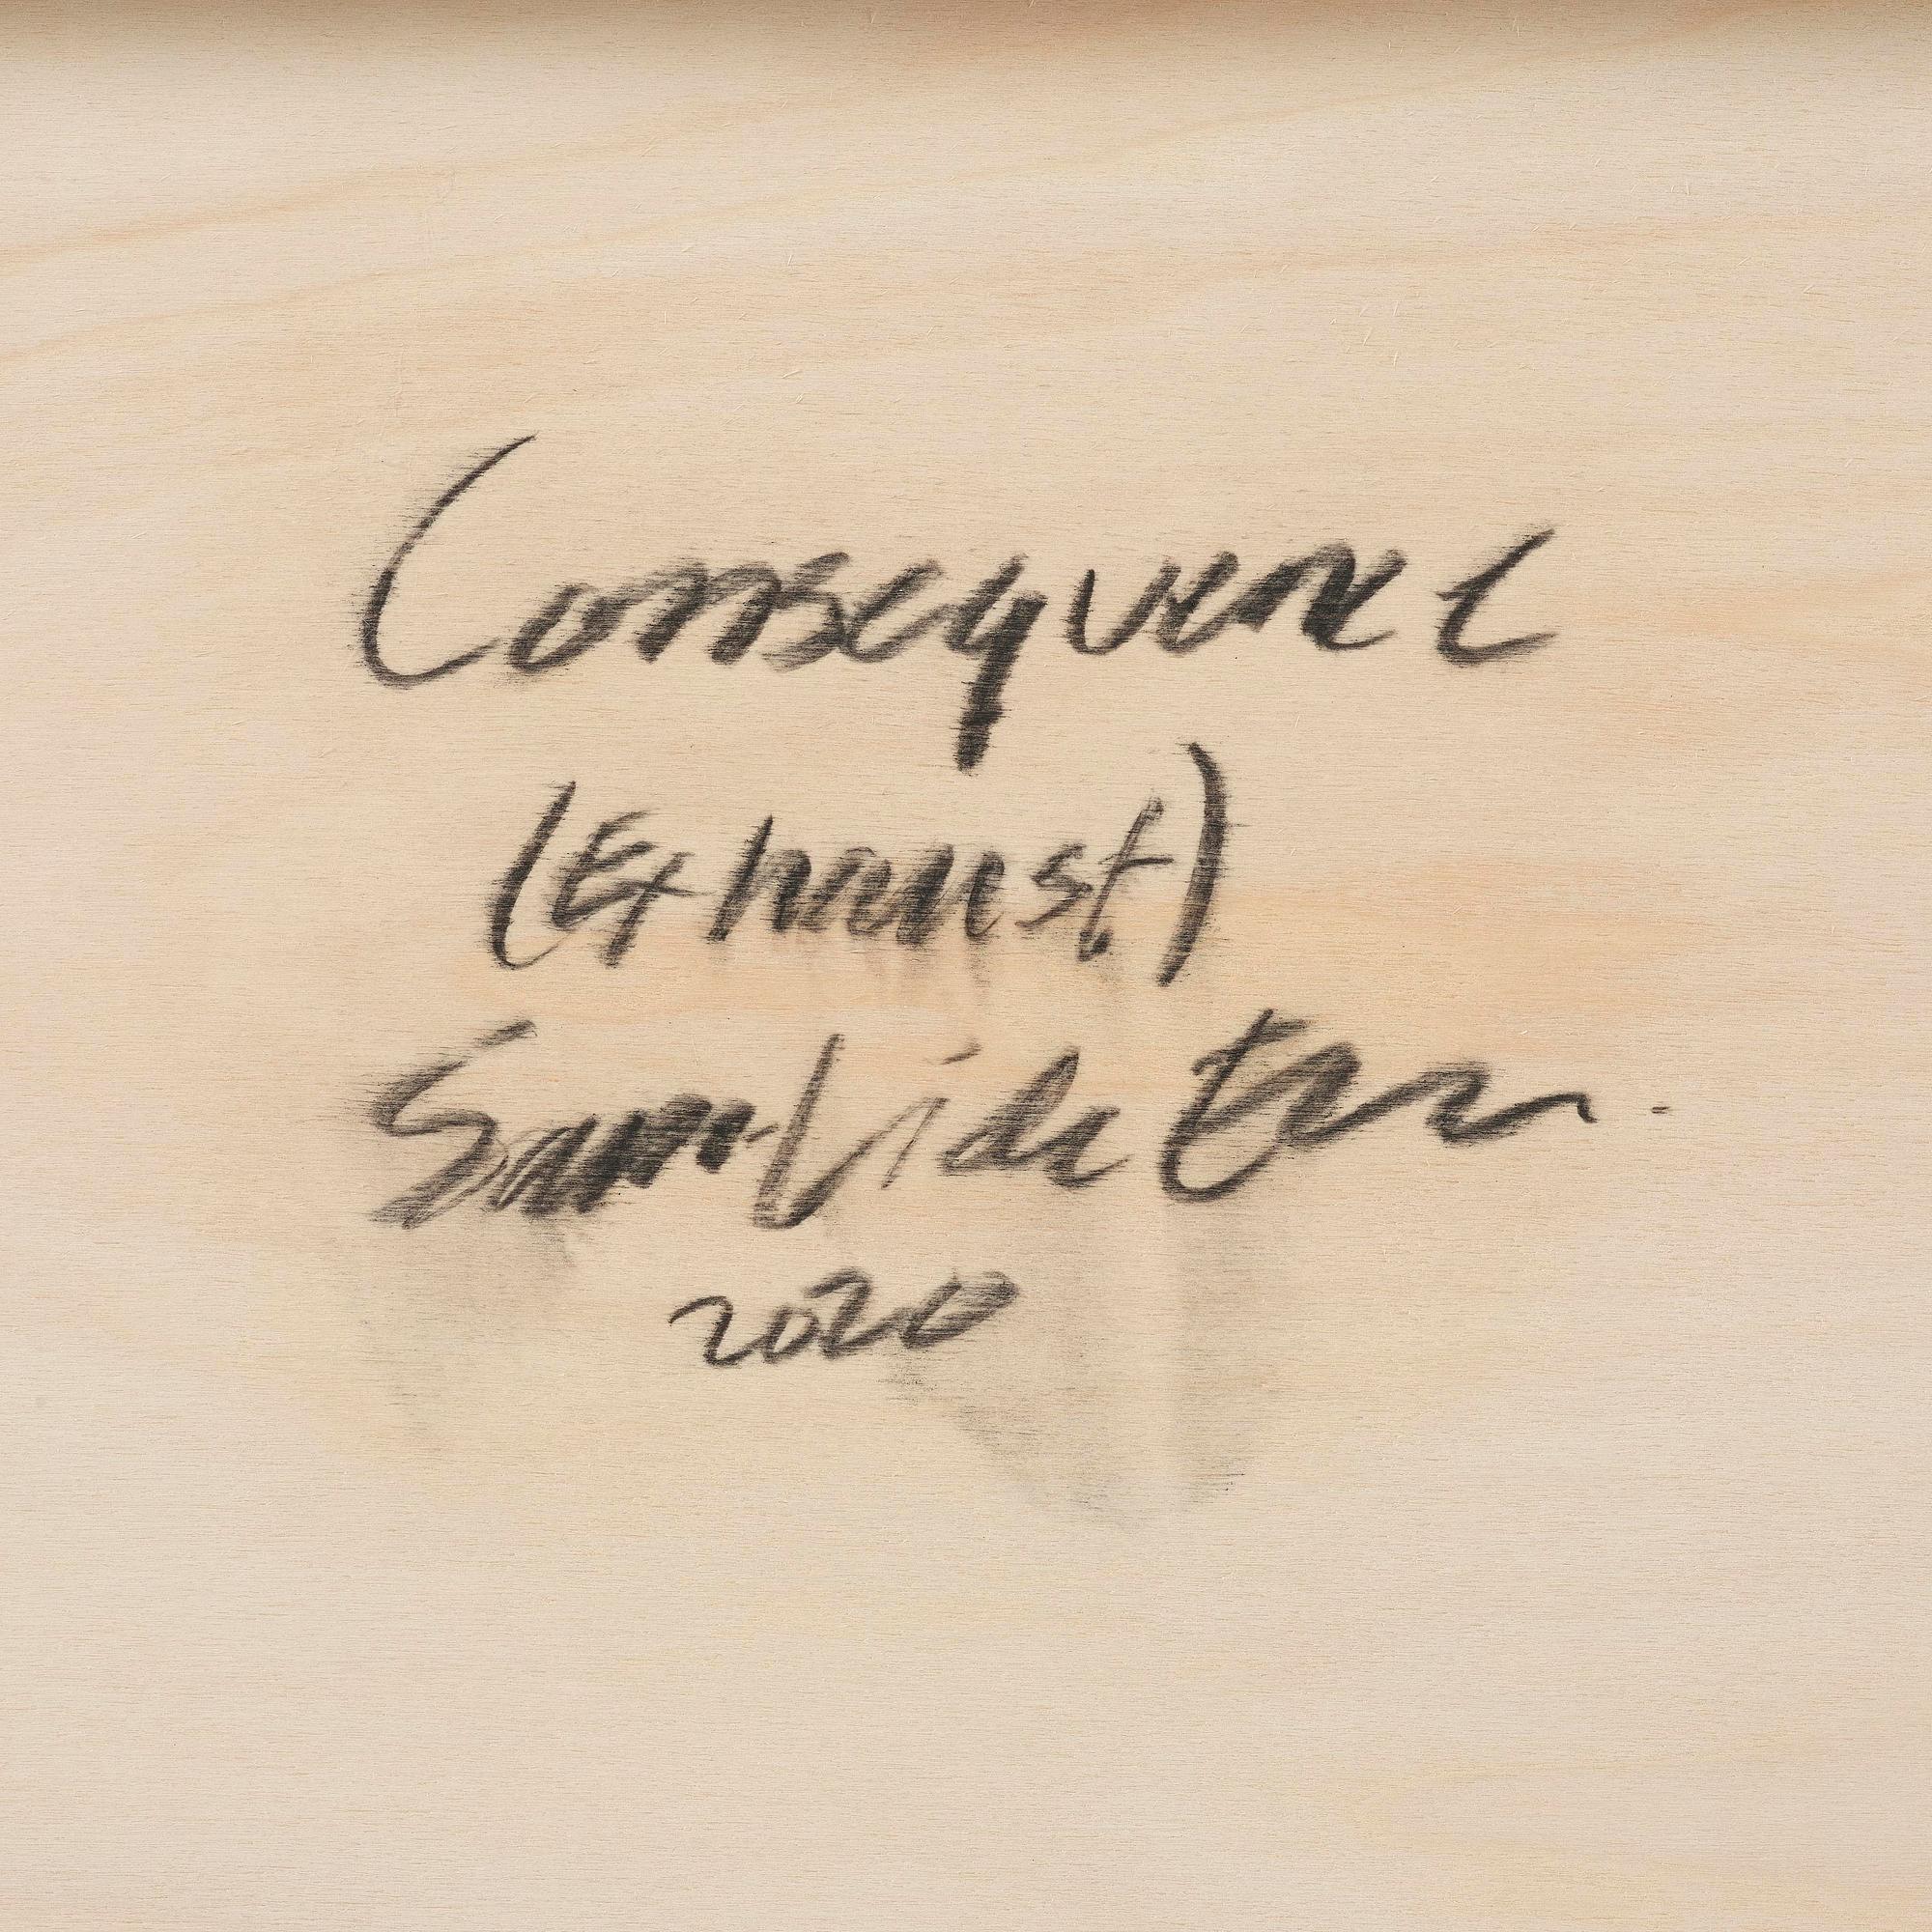 Consequence
(Exhaust)
Sam
2020